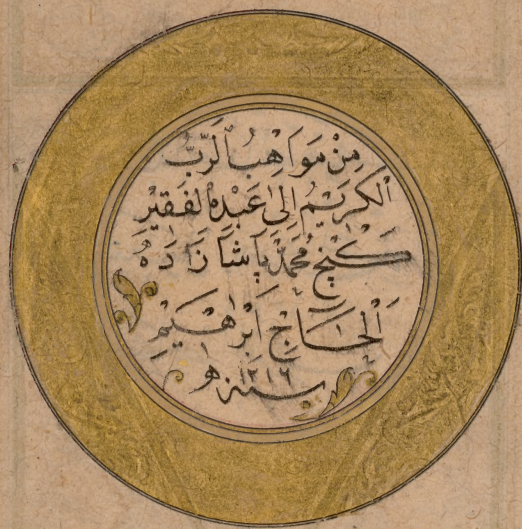 مِنْ مَوَاهِبُ الرَّبِّ
الْكَرِيْمْ اِلٰى عَبْدِهِ الْفَقِيْرْ
كَنْجْ مُحَمَّدْ پَاشَا زَادَهْ
اَلْحَاجْ اِبْرٰهِيْمْ
سنه ١٢١٦ هـ